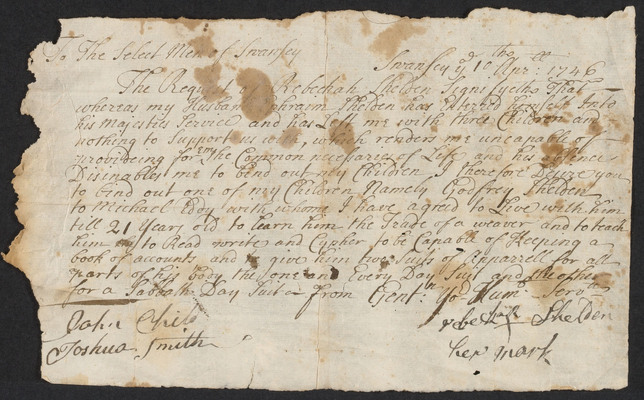 To The Select Men of Swansey
Swansey ye 1o Apr: 1746
The Request of Rebeckah Shelden Signifyeth That
whereas my Husband Ephraim Shelden has Entered himself Into
his Majesties Service and has Left me with three Children and
nothing to Support us with, which renders me uncapable of
provideing for em the Common necessaries of Life and his absence
Disinables me to bind out my Children I therefore Desire you
to bind out one of my Children Namely Godfrey Shelden
to Michael Eddy with whome I have agreed to Live with him
till 21 years old to Learn him the Trade of a weaver and to teach
him to Read write and Cypher to be Capable of Keeping a
book of accounts and to give him two Suits of Apparrell for all
parts of his body the one an Every Day Suit and the other
for a Sabbath Day Suit from Gentln yor Humb Servnt
John Child
Joshua Smith
Rebeckah Shelden
her mark